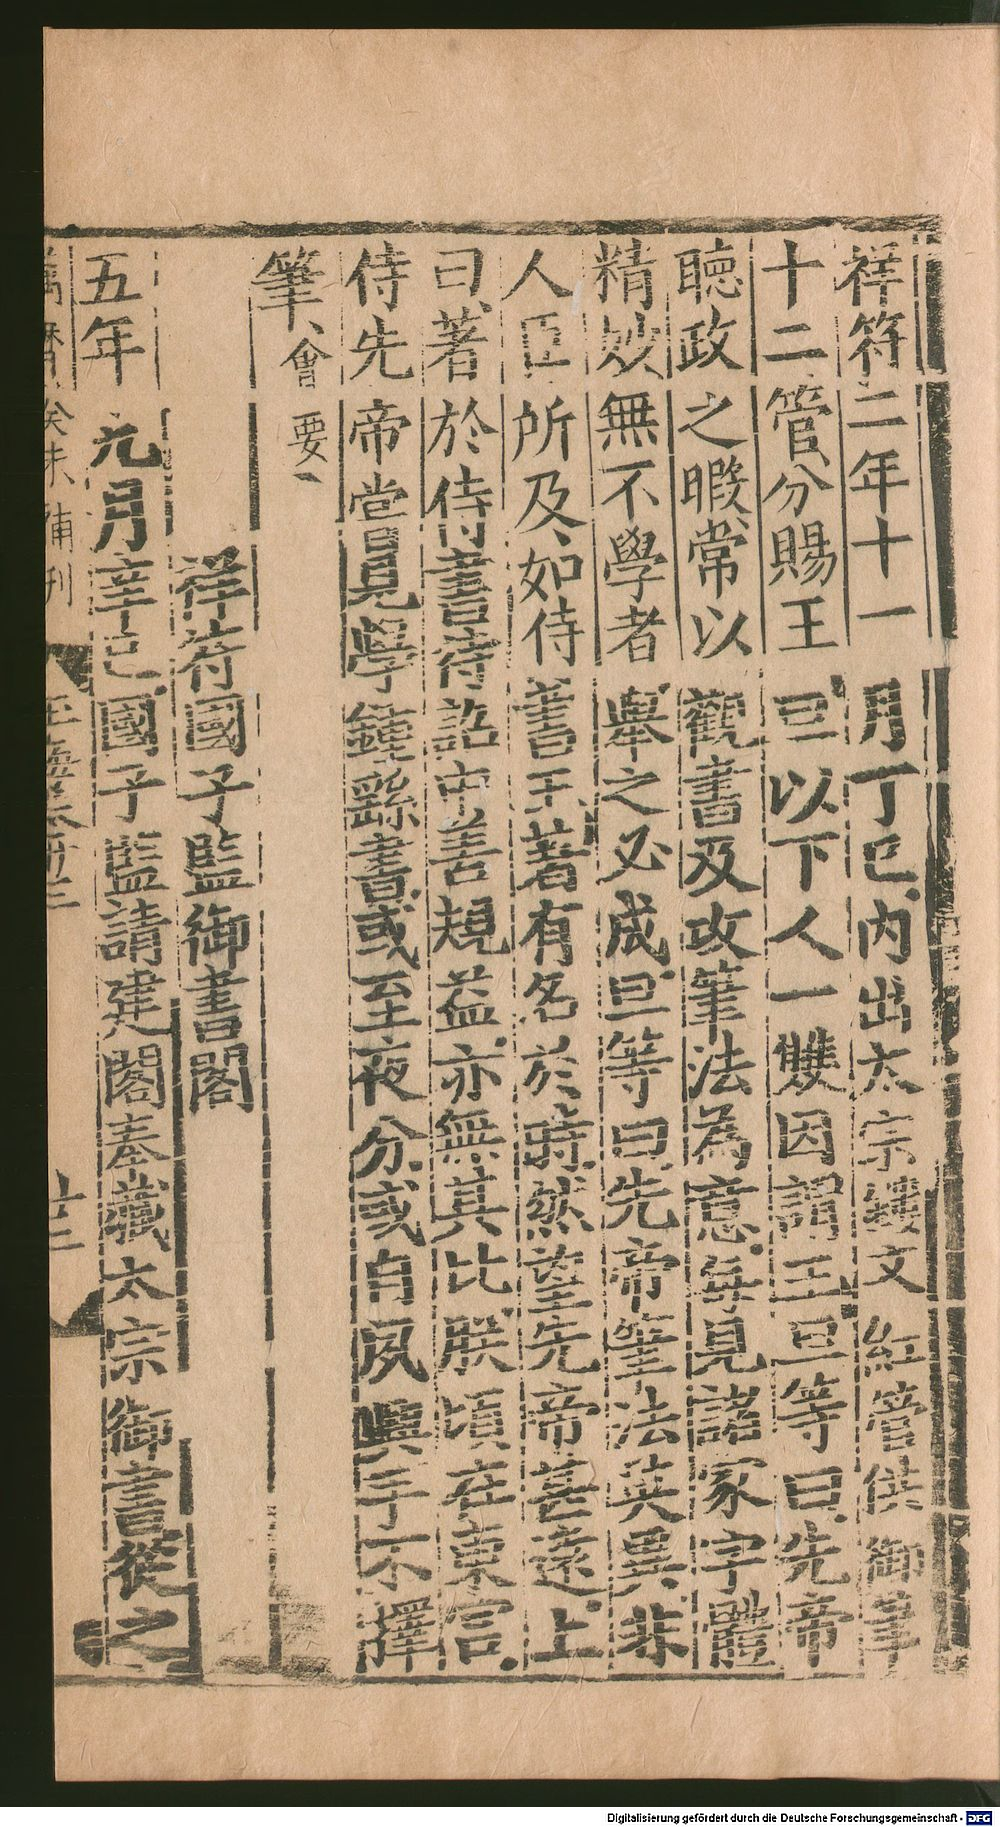 祥符二年十一月丁巳内出太宗鏤文紅管供御筆
十二管分賜王旦以下人一雙因謂王旦等曰先帝
聽政之暇常以觀書及攻筆法為意每見諸家字體
精妙無不學者舉之必成旦等曰先帝筆法英異非
人臣所及如侍書王著有名於時然望先帝甚遠上
曰著於侍書待詔中善規益亦無其比朕頃在東宫
侍先帝嘗見學鍾繇書或至夜分或自夙興手不擇
筆會要
祥符國子監御書閣
五年九月辛巳國子監請建閣奉藏太宗御書從之
萬曆癸未補刊
玉海卷卅三
廿三
Digitalisierung gefördert durch die Deutsche Forschungsgemeinschaft - DFG